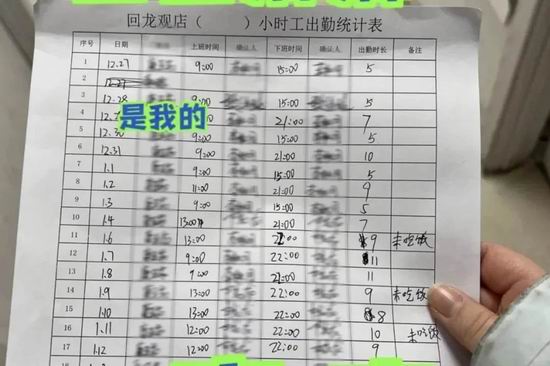 回龙观店（ ）小时工出勤统计表
序号 日期 上班时间 确认人 下班时间 确认人 出勤时长 备注
1 12.27 9:00 15:00 5
2 12.27
3 12.28 9:00 15:00 5
4 9:00 21:00 7
5 12.30 9:00 15:00 5
6 12.31 9:00 21:00 10
7 1.1 9:00 15:00 5
8 1.2 11:00 21:00 9
9 1.3 9:00 15:00 5
10 1.4 13:00 21:00 7
11 1.6 13:00 22:00 9 未吃饭
12 1.7 9:00 22:00 11
13 1.8 9:00 21:00 11
14 1.9 13:00 22:00 9 未吃饭
15 1.10 13:00 22:00 8
16 1.11 12:00 22:00 10 未吃饭
17 1.12 12:00 22:00 9
是我的